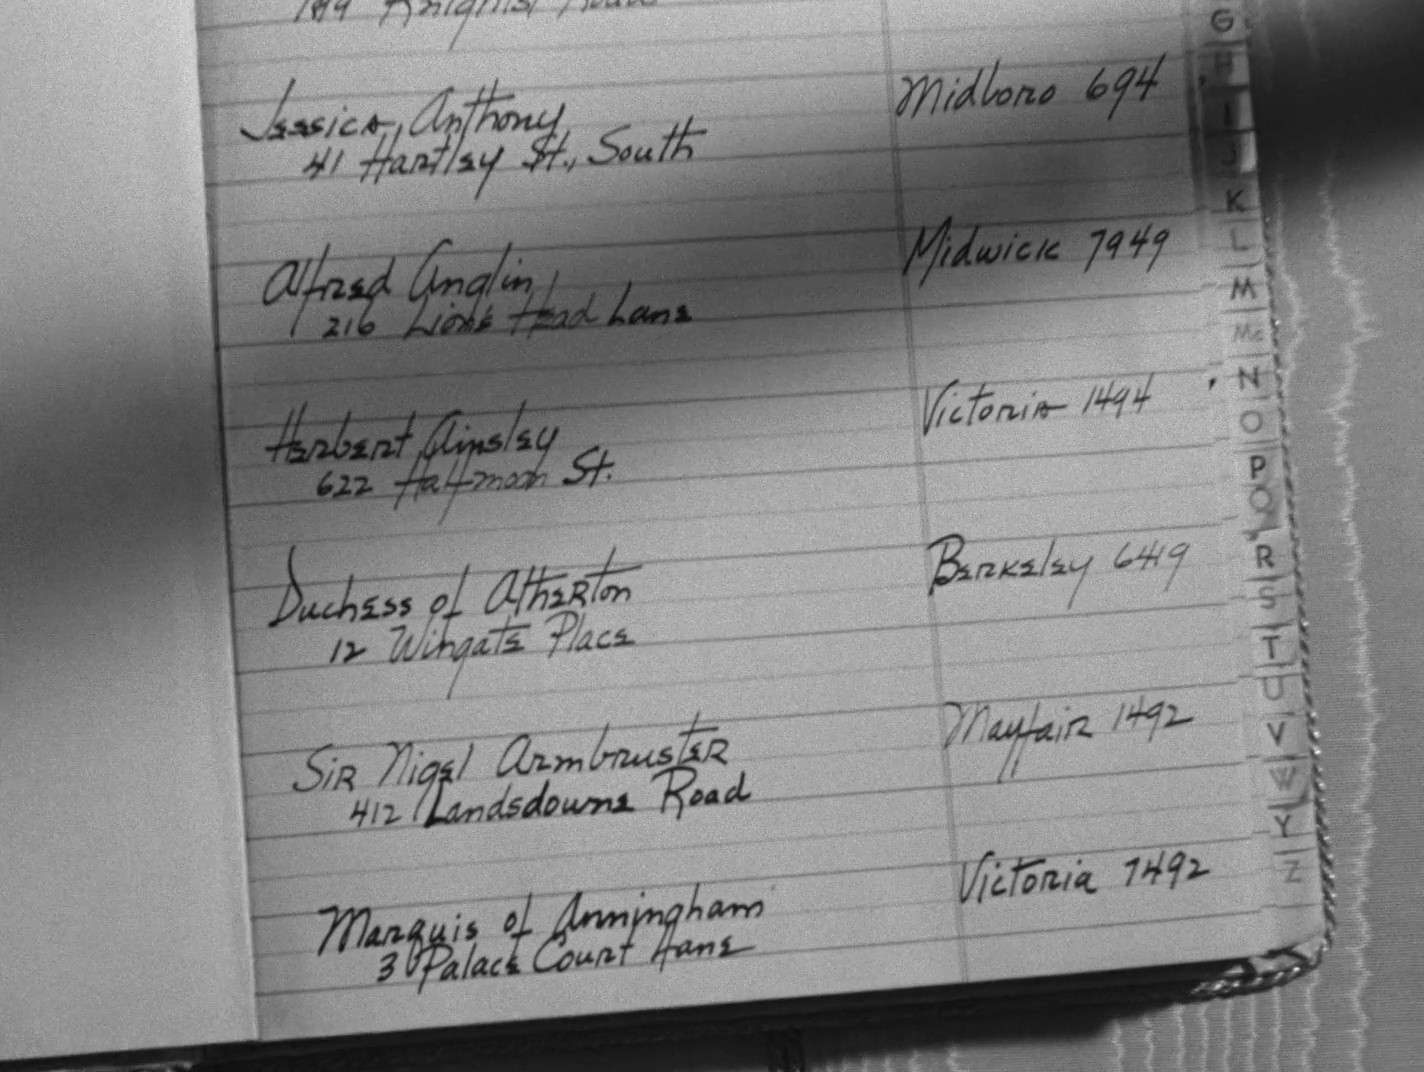 Jessica Anthony Midboro 694
41 Hartley St., South
Alfred Anglin Midwick 7949
216 Lion's Head Lane
Herbert Ainsley Victoria 1494
622 Halfmoon St.
Duchess of Atherton Berkeley 6419
12 Wingate Place
Sir Nigel Armbruster Mayfair 1492
412 Landsdowne Road
Marquis of Anningham Victoria 7492
3 Palace Court Lane
G
H
I
J
K
L
M
Mc
N
O
P
Q
R
S
T
U
V
W
Y
Z